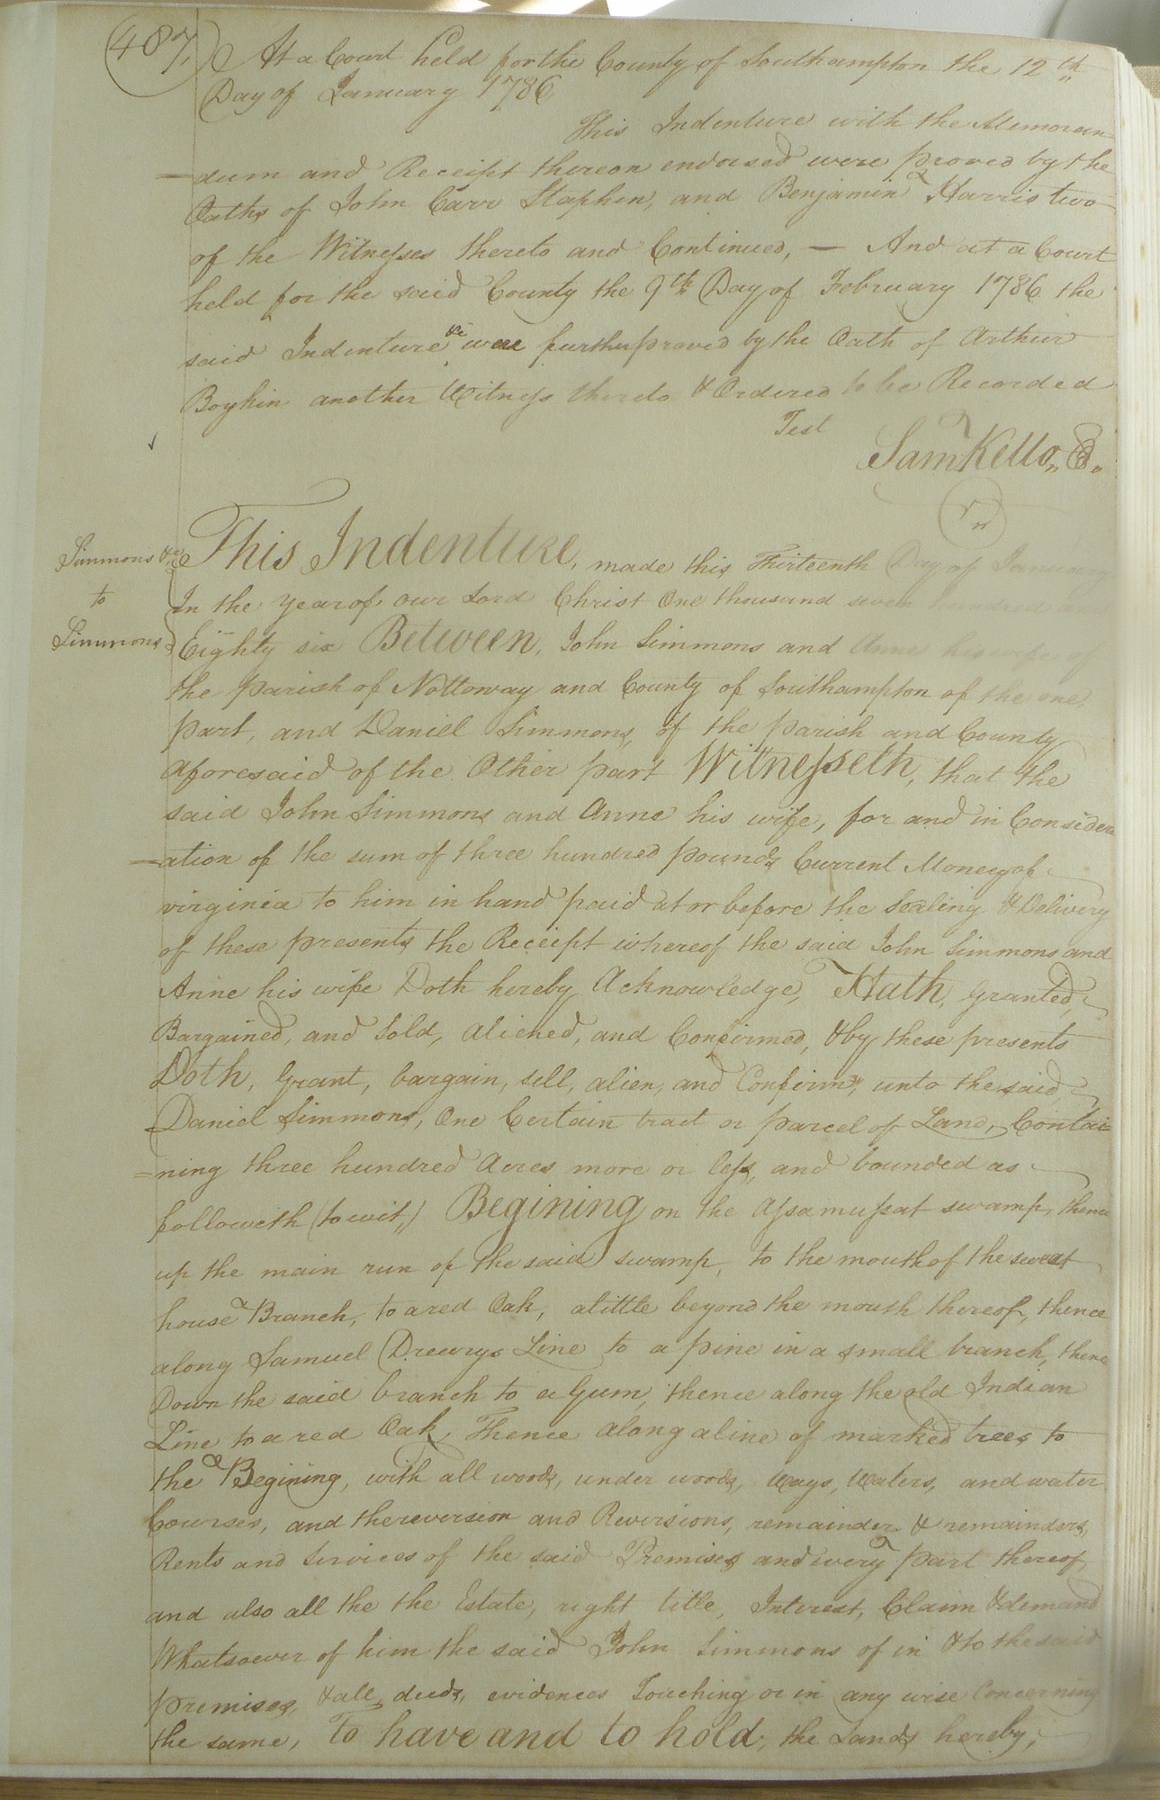 (487)
At a Court held for the County of Southampton the 12th
Day of January 1786
This Indenture with the Memoran
dum and Receipt thereon endorsed were proved by the
Oaths of John Carr Stephen, and Benjamin Harris two
of the Witnesses thereto and Continued, — And at a Court
held for the said County the 9th Day of February 1786 the
said Indenture &c were further proved by the Oath of Arthur
Boykin another Witness thereto & Ordered to be Recorded
Test
Saml Kello,,
Simmons &c
to
Simmons
This Indenture, made this Thirteenth Day of January
In the year of our Lord Christ One thousand seven hundred
Eighty six Between, John Simmons and Anne his wife of
the parish of Nottoway and County of Southampton of the one
part, and Daniel Simmons, of the parish and County
aforesaid of the Other part Witnesseth, that the
said John Simmons and Anne his wife, for and in Consider
=ation of the sum of three hundred pounds Current Money of
virginia to him in hand paid at or before the sealing & Delivery
of these presents the Receipt whereof the said John Simmons and
Anne his wife Doth hereby Acknowledge, Hath, granted,
Bargained, and Sold, aliened, and Confirmed, & by these presents
Doth, Grant, bargain, sell, alien, and Confirm, unto the said
Daniel Simmons, One Certain tract or parcel of Land, Contai
=ning three hundred Acres more or less, and bounded as
followeth (to wit,) Begining on the Assamussat swamp, thence
up the main run of the said swamp, to the mouth of the sweat
house Branch, to a red Oak, a little beyond the mouth thereof, thence
along Samuel Drewrys Line to a pine in a small branch, thence
Down the said branch to a Gum, thence along the old Indian
Line to a red Oak, Thence along a line of marked trees to
the Begining, with all woods, under woods, Ways, Waters, and water
Courses, and the reversion and Reversions, remainder & remainders,
Rents and Services of the said Premises and every part thereof,
and also all the the Estate, right title, Interest, Claim & demand
Whatsoever of him the said John Simmons of in & to the said
premises, & all deeds, evidences Touching or in any wise Concerning
the same, To have and to hold, the Lands hereby,